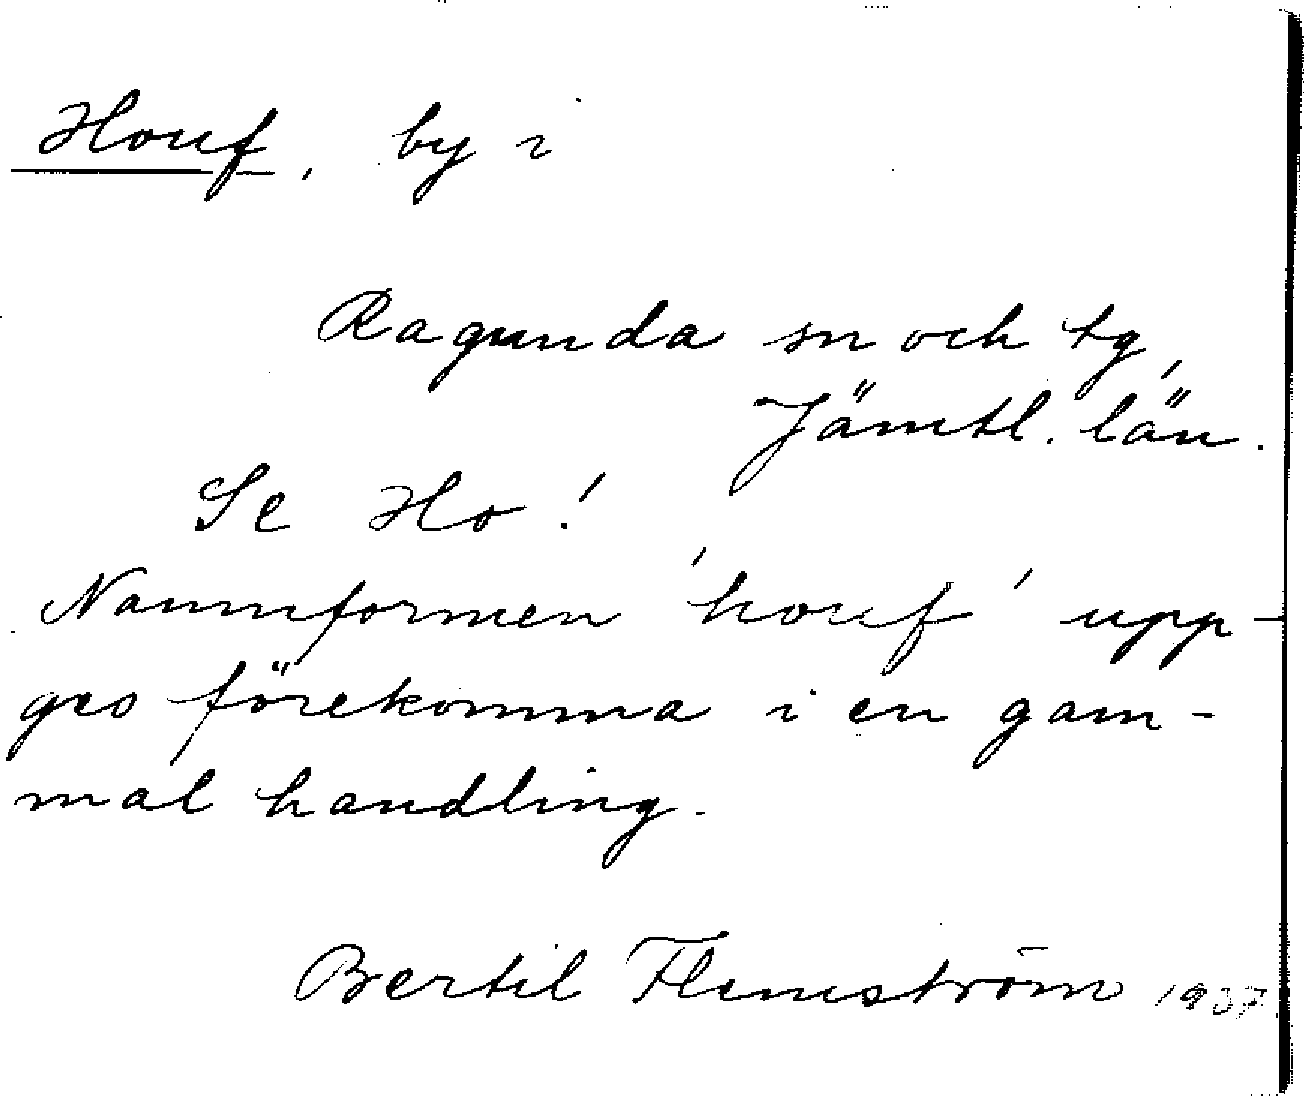 Houf, by i
Ragunda sn och tg,
Jämtl. län.
Se Ho!
Namnformen 'houf' upp-
ges förekomma i en gam-
mal handling.
Bertil Flemström 1937